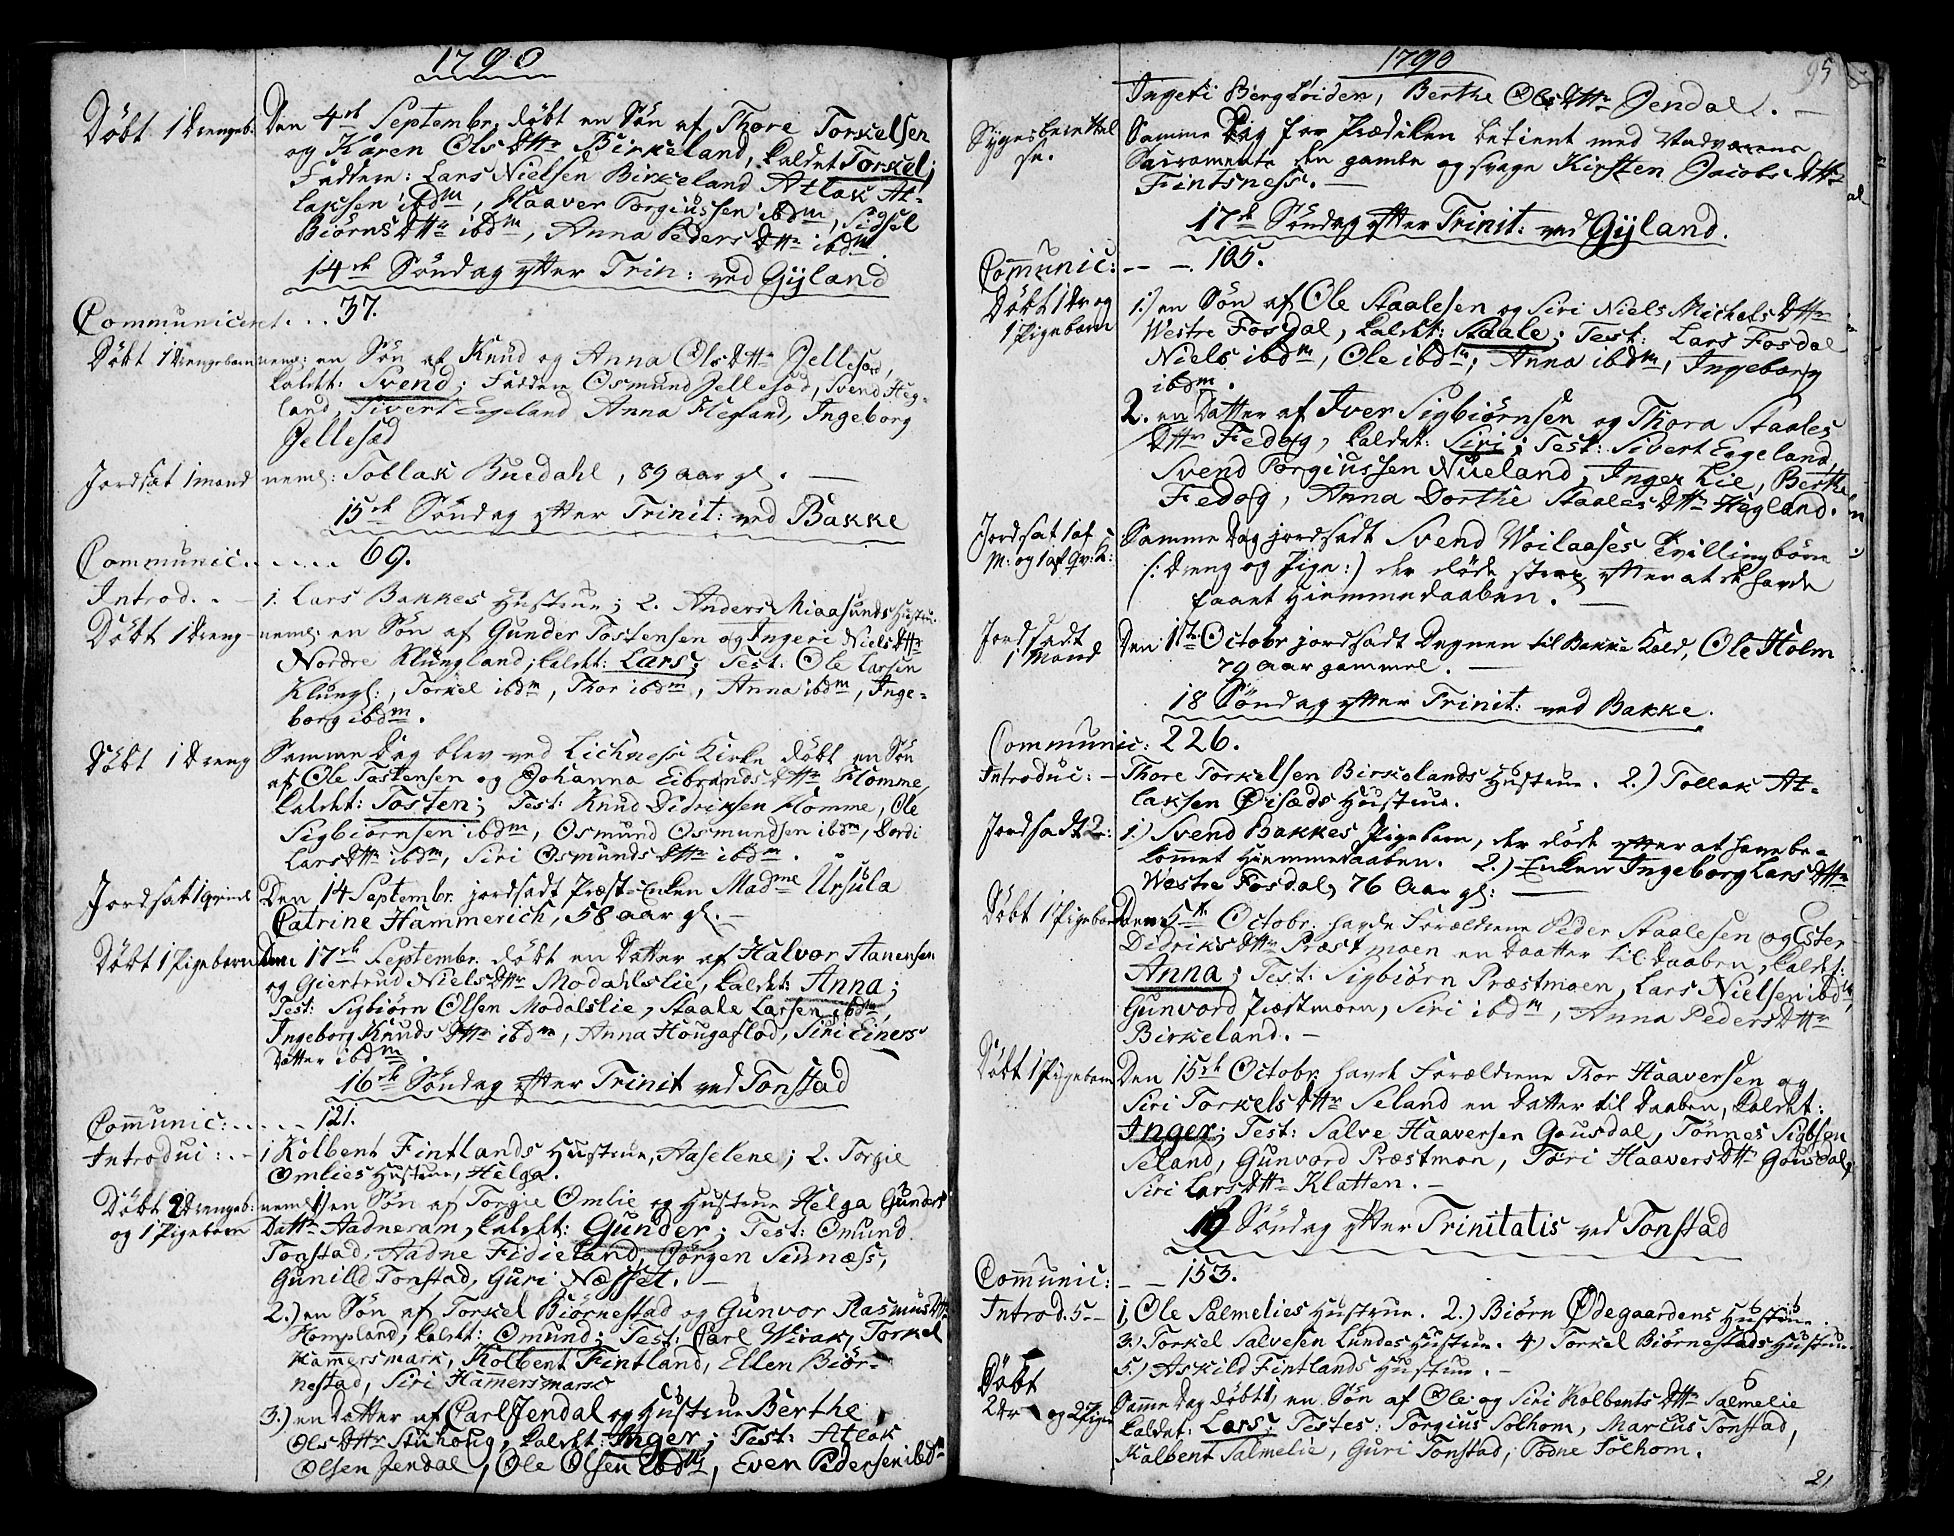 1790
Døbt 1 Drengeb: Den 4de Septembr. døbt en Søn af Thore Torkelsen
og Karen Ols Dttr Birkeland, kaldet Torkel;
Faddere: Lars Nielsen Birkeland, Atlak At-
laksen ibdm, Haaver Torgiussen ibdm, Sidsel
Biørns Dttr ibdm, Anna Peders Dttr ibdm.
14de Søndag efter Trin: ved Gyland
Communiceret ... 37.
Døbt 1 Drengebarn neml: en Søn af Knud og Anna Ols Dttr Jellesød,
kaldet: Svend; Faddere Osmund Jellesød, Svend Heg-
land, Sivert Eegeland, Anna Hegland, Ingeborg
Jellesød
Jordsat 1 mand neml: Tollak Buedahl, 89 aar gl. —
15de Søndag efter Trinit: ved Bakke
Communic. . . . . . 69.
Introd. . — 1. Lars Bakkes Hustrue; 2. Anders Miaasunds Hustru.
Døbt 1 Dreng — neml: en Søn af Gunder Tostensen og Ingeri Niels Dttr
Nordre Klungland, kaldet: Lars; Test: Ole Larsen
Klungl:, Torkel ibdm, Thor ibdm, Anna ibdm, Inge-
borg ibdm.
Døbt 1 Dreng Samme Dag blev ved Lichness Kirke døbt en Søn
af Ole Tostensen og Johanna Eibrands Dttr Flomme,
kaldet: Tosten; Test: Knud Didriksen Flomme, Ole
Sigbiørnsen ibdm, Osmund Osmundsen ibdm, Dordi
Lars Dttr ibdm, Siri Osmunds Dttr ibdm.
Jordsat 1 qvinde Den 14 Septembr. jordsadt Præst-Enken Madme Ursula
Catrine Hammerich, 58 aar gl. —
Døbt 1 Pigebarn Den 17de Septembr. døbt en Datter af Halvor Aanensen
og Giertrud Niels Dttr Modahlslie, kaldet: Anna;
Test: Sigbiørn Olsen Modalslie, Staale Larsen ibdm,
Ingeborg Knuds Dttr ibdm, Anna Hougaflod, Siri Einers
Datter ibdm.
16de Søndag efter Trinit ved Tonstad
Communic: . . . . . 121.
Introduc: . — 1 Kolbent Fintlands Hustrue, Aaselene; 2. Torgie
Omlies Hustrue, Helga.
Døbt 2 Drengeb: neml 1) en Søn af Torgie Omlie og Hustrue Helga Gunders
og 1 Pigebarn Dattr Aadneram, kaldet: Gunder; Test: Omund
Tonstad, Aadne Fidieland, Jørgen Sinnæss,
Gunild Tonstad, Guri Næsset. —
2.) en Søn af Torkel Biørnestad og Gunvor Rasmus Dttr
Hompland, kaldet: Omund; Test: Carl Wirak, Torkel
Hamersmark, Kolbent Fintland, Ellen Biør-
nestad, Siri Hamersmark
3.) en datter af Carl Jendal og Hustrue Berthe
Ols Dttr Stuhoug, kaldet: Inger; Test: Atlak
Olsen Jendal, Ole Olsen ibdm, Even Pedersen ibdm
1790
95
Ingeri Bergløiden, Berthe Ols Dttr Jendal. —
Syges berettel Samme Dag før Prædiken betient med
se. Sacramente den gamle og svage Kirsten Jacobs Dttr
Fintsness. —
17de Søndag efter Trinit: ved Gyland.
Communic: — — 105.
Døbt 1 Dr og 1.) en Søn af Ole Staalesen og Siri Niels Michels Dttr
1 Pigebarn Westre Fosdal, kaldet: Staale; Test: Lars Fosdal
Niels ibdm, Ole ibdm, Anna ibdm, Ingeborg
ibdm.
2. en Datter af Iver Sigbiørnsen og Thora Staales
Dttr Fedog, kaldet: Siri; Test: Sivert Eegeland,
Svend Torgiussen Nueland, Inger Lie, Berthe
Fedog, Anna Dorthe Staales Dttr Hegland.
Jordsat 1 af Samme Dag jordsadt Svend Woilaases Tvillingbørn
M: og 1 af Qv: K: (: Dreng og Pige :) der døde strax efter at de havde
faaet Hiemmedaaben. —
Jordsadt Den 1ste Octobr jordsadt Degnen til Bakke Kald, Ole Holm
1 Mand 79 aar gammel. —
18 Søndag efter Trinit: ved Bakke.
Communic: 226.
Introduc: — Thore Torkelsen Birkelands Hustrue. 2.) Tollak At-
laksen Øisæds Hustrue.
Jordsadt 2: 1.) Svend Bakkes Pigebarn, der døde efter at have be-
kommet Hiemmedaaben. 2.) Enken Ingeborg Lars Dttr
Westre Fosdal, 76 Aar gl: —
Døbt 1 Pigebarn Den 5te Octobr. havde Forældrene Peder Staalesen og Ester
Didriks Dttr Præstmoen en Daatter til Daaben, kaldet:
Anna; Test: Sigbiørn Præstmoen, Lars Nielsen ibdm,
Gunvord Præstmoen, Siri ibdm, Anna Peders Dttr
Birkeland. —
Døbt 1 Pigebarn Den 15de Octobr. havde Forældrene Thor Haaversen og
Siri Torkels Dttr Seland en Datter til Daaben, kaldet:
Inger; Test: Salve Haaversen Gousdal, Tønnes Sigbsen
Seland, Gunvord Præstmon, Tori Haavers Dttr Gousdal,
Siri Lars Dttr Klatten. —
19 Søndag efter Trinitatis ved Tonstad
Communic: — — 153.
Introd. 5 — 1, Ole Salmelies Hustrue. 2.) Biørn Ødegaardens Hustrue.
3.) Torkel Salvesen Lundes Hustrue. 4) Torkel Biørnestads Hustrue.
5.) Askild Fintlands Hustrue. —
Døbt Samme Dag døbt 1, en Søn af Ole og Siri Kolbents Dttr Salmelie
2 Dr og 2 Piger kaldet: Lars; Testes: Torgius Solhom, Marcus Tonstad,
Kolbent Salmelie, Guri Tonstad, Todne Solhom.
2,